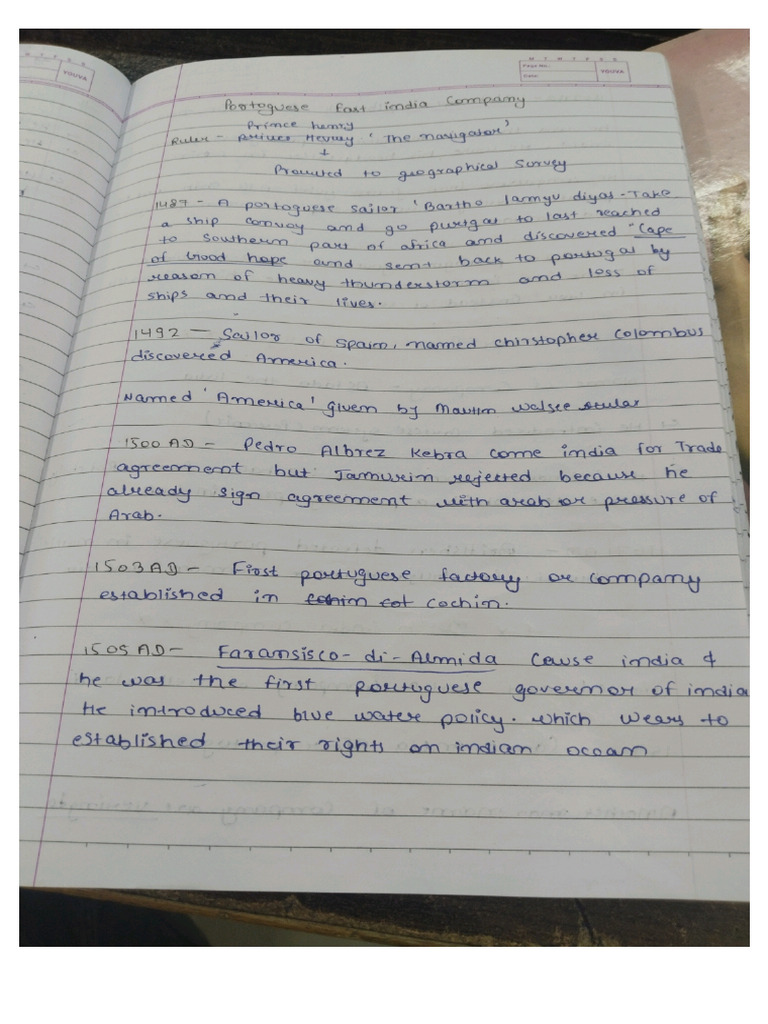 M T W T F S S
Page No.:
Date:
YOUVA
YOUVA
Portoguese East india Company
Prince henry
Ruler - prince Henry ' The navigator'
↓
Promoted to geographical Survey
1487 - A portoguese sailor 'Bartho lamyu diyas - Take
a ship convoy and go purtgal to last reached
to southern part of africa and discovered "Cape
of Good hope and sent back to portugal by
reason of heavy thunderstorm and loss of
ships and their lives.
1492 - Sailor of spain, named chirstopher Colombus
discovered America.
Named 'America' given by Martim walsee
1500 AD - Pedro Albrez Kebra come india for Trade
agreement but Jamurim rejected because he
already sign agreement with arab or pressure of
Arab.
1503 AD - First portuguese factory or company
established in cochin.
1505 AD - Faransisco - di - Almida india &
he was the first portuguese governor of india
He introduced blue water policy. which wears to
established their rights on indian ocoan